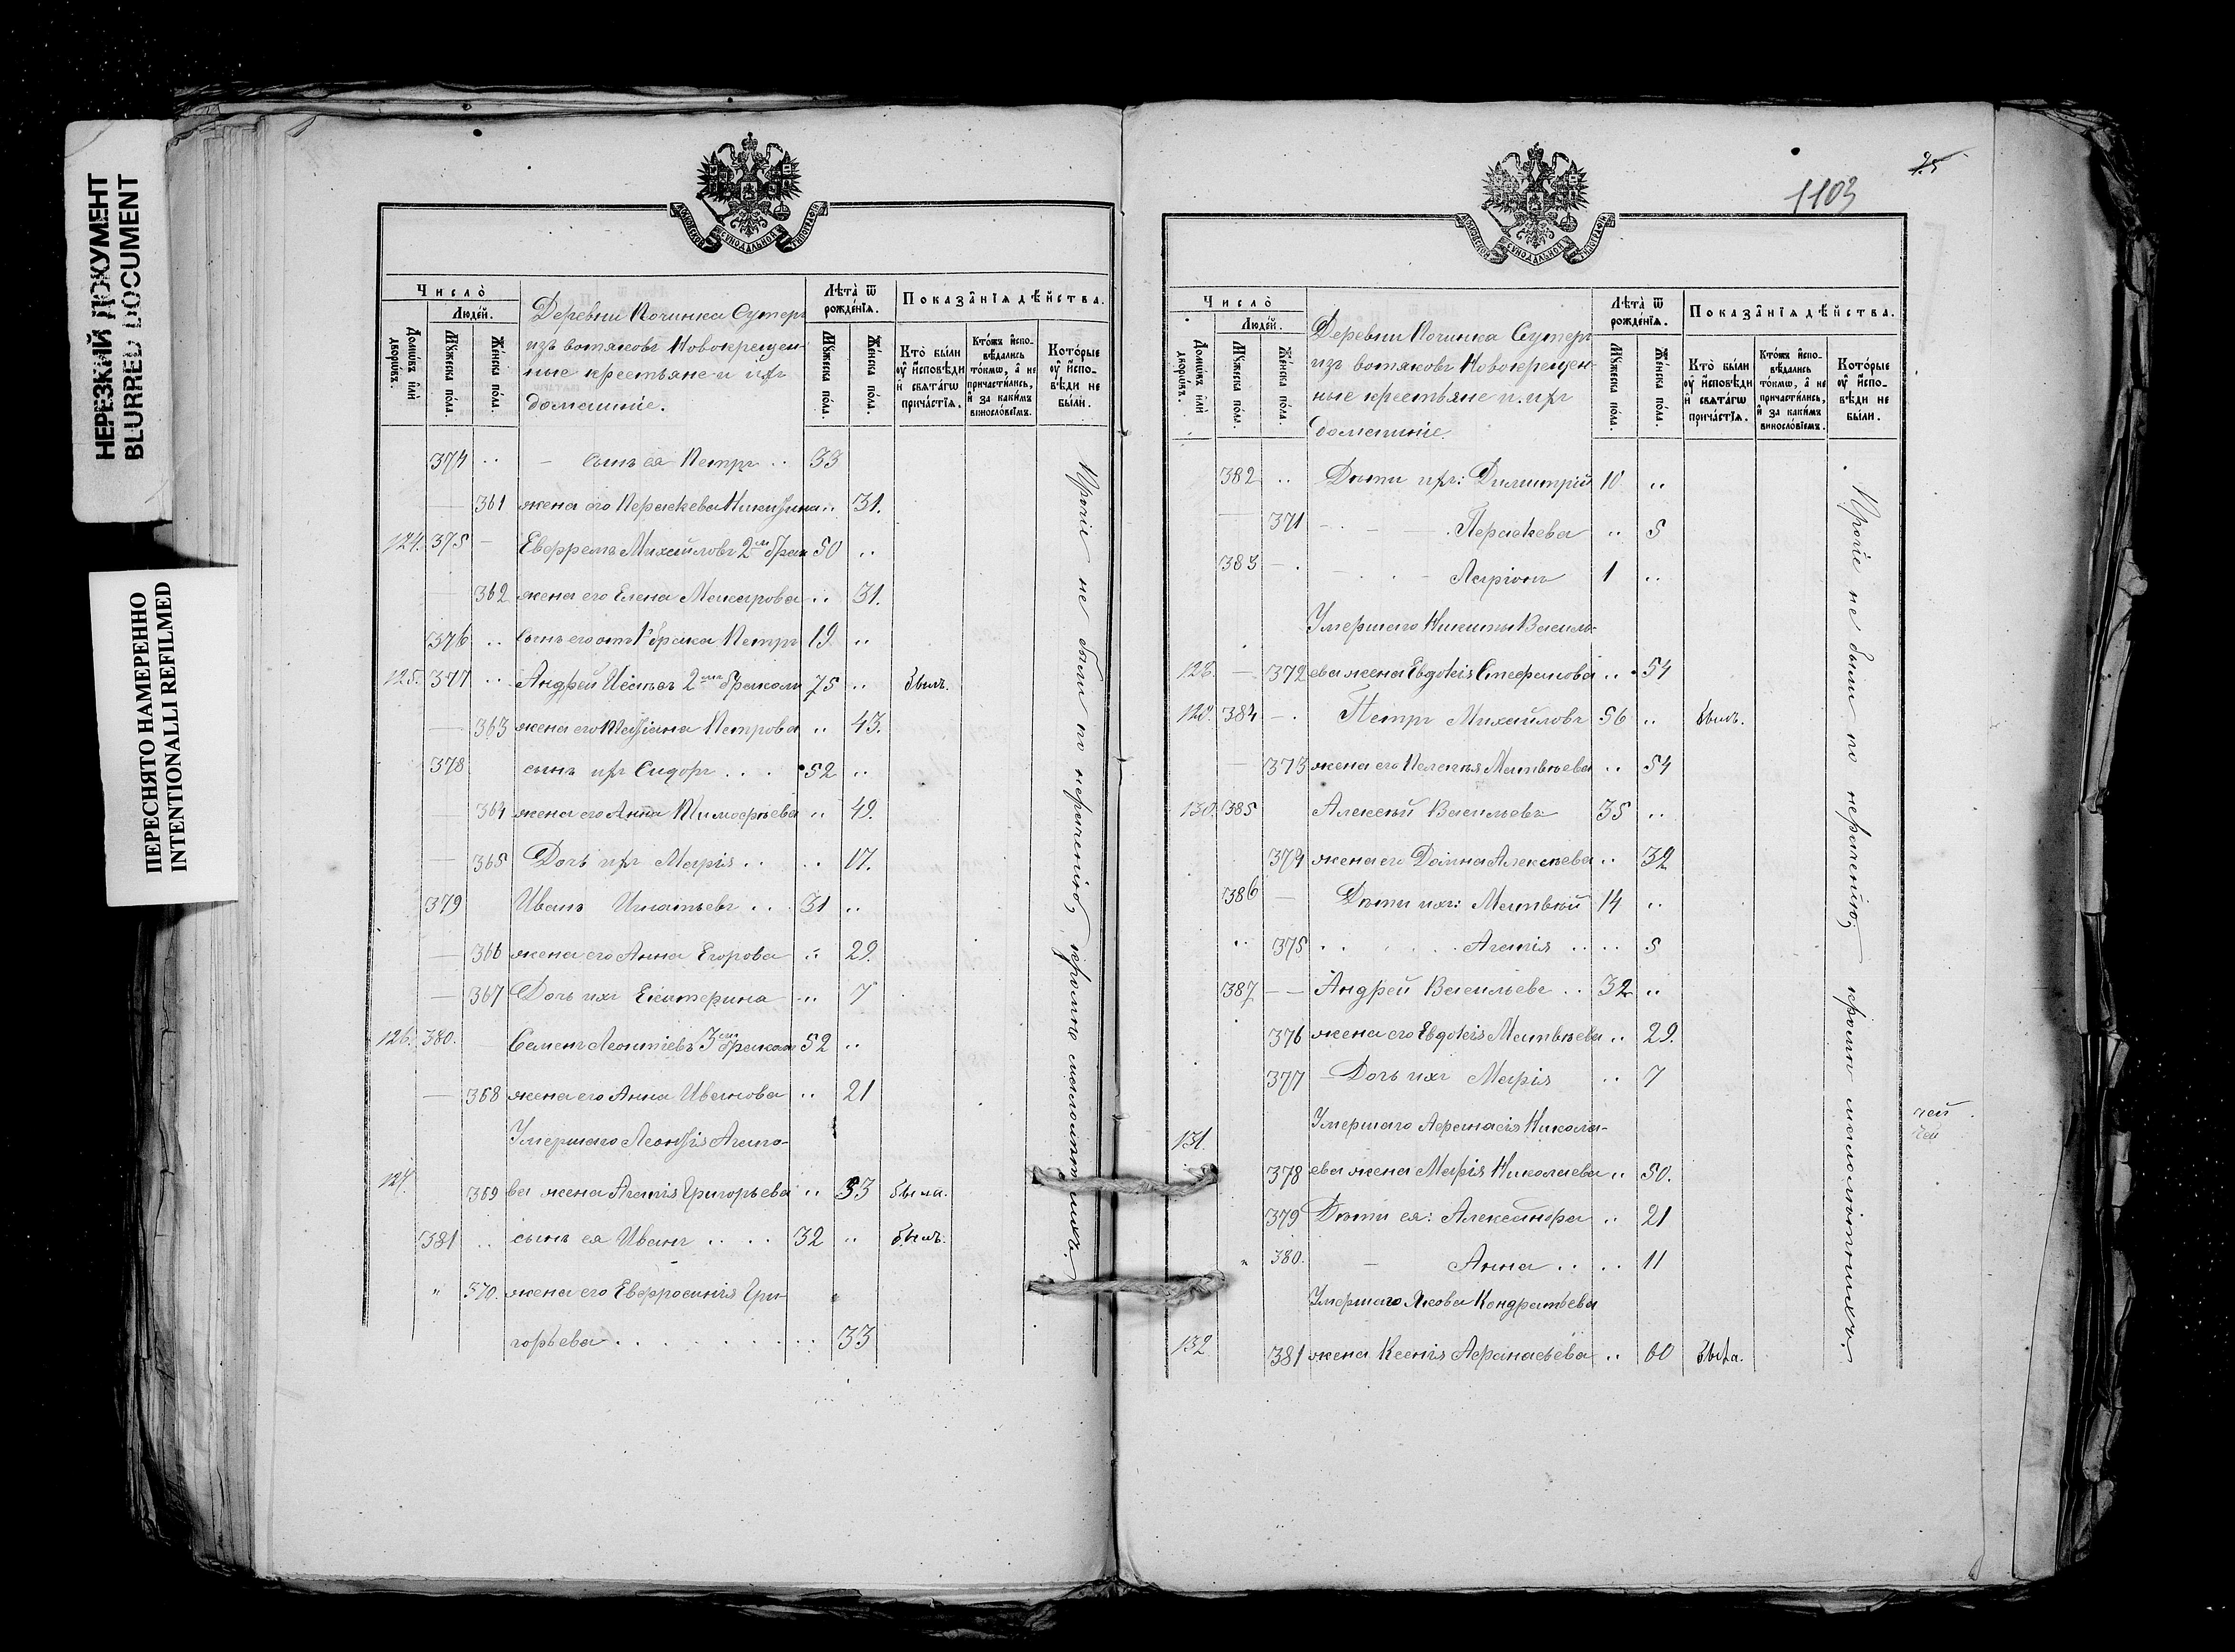 НЕРЕЗКИЙ ДОКУМЕНТ
BLURRED DOCUMENT
ПЕРЕСНЯТО НАМЕРЕННО
INTENTIONALLI REFILMED
МОСКОВСКОЙ СѴНОДАЛЬНОЙ ТИПОГРАФІИ
Число̀
Людей.
Домѡвъ и҆лѝ дворѡвъ.
Мꙋжеска по́ла.
Же́нска по́ла.
Деревни Починка Сутер
изъ вотяковъ Новокрещен-
ные крестьяне и ихъ
домашніе.
Лѣта̀ ѿ рожде́нїѧ.
Мꙋжеска по́ла.
Же́нска по́ла.
Показа̂нїѧ дѣ́йства.
Кто̀ бы́ли оу҆ и҆сповѣди и҆ свѧта́гѡ прича́стїѧ.
Кто́жъ и҆спо-вѣдались то́кмѡ, а҆ не причасти́лись, и҆ за каки́мъ винословїемъ.
Кото́рые оу҆ и҆спо-вѣди не бы́ли.
374 .. - сынъ ея Петръ .. 33
361 жена его Параскева Никитина .. 31.
124. 375 - Евфремъ Михайловъ 2мъ брак 50 ..
362 жена его Елена Макарова .. 31.
376 .. сынъ его отъ 1 брака Петръ 19 ..
125. 377 .. Андрей 2мъ бракомъ 75 .. былъ.
363 жена его Татіана Петрова .. 43.
378 сынъ ихъ Сидоръ . . . 52 ..
364 жена его Анна Тимофѣева .. 49.
365 Дочь ихъ Марія .. .. 17.
379 Иванъ Игнатьевъ .. . 31 ..
366 жена его Анна Егорова .. 29.
367 Дочь ихъ Екатерина .. 7
126. 380. Семенъ Леонтіевъ 3мъ бракомъ 52 ..
368 жена его Анна Иванова .. 21
Умершаго Леонтія Агапо-
127. 369 ва жена Агапія Григорьева .. 53 была.
381 .. сынъ ея Иванъ . . . . 32 .. былъ.
" 370. жена его Евфросинія Гри-
горьева . . . . . . . . . 33
Прочіе не были по нераченію, кромѣ малолѣтнихъ.
25
1103
МОСКОВСКОЙ СѴНОДАЛЬНОЙ ТИПОГРАФІИ
Число̀
Людей.
Домѡвъ и҆лѝ дворѡвъ.
Мꙋжеска по́ла.
Же́нска по́ла.
Деревни Починка Сутер
изъ вотяковъ Новокрещен-
ные крестьяне и ихъ
домашніе.
Лѣта̀ ѿ рожде́нїѧ.
Мꙋжеска по́ла.
Же́нска по́ла.
Показа̂нїѧ дѣ́йства.
Кто̀ бы́ли оу҆ и҆сповѣди и҆ свѧта́гѡ прича́стїѧ.
Кто́жъ и҆спо-вѣдались то́кмѡ, а҆ не причасти́лись, и҆ за каки́мъ винословїемъ.
Кото́рые оу҆ и҆спо-вѣди не бы́ли.
382 .. Дѣти ихъ: Димитрій 10 ..
371 - - - Параскева .. 5
383 - - Ларіонъ 1 ..
Умершаго Никиты Василь-
128. - 372 ева жена Евдокія Стефанова .. 54
129. 384 - Петръ Михайловъ 56 .. былъ.
373 жена его Пелагія Матвѣева .. 54
130. 385 Алексѣй Васильевъ 35 ..
374 жена его Алексѣева .. 32
386 - Дѣти ихъ: Матвѣй 14 ..
.. 375 . . . . . . Агапія .. .. 5
387 - - Андрей Васильевъ .. 32 ..
376 жена его Евдокія Матвѣева .. 29.
377 - Дочь ихъ Марія .. 7
Умершаго Афанасія Никола-
131.
378 ева жена Марія Николаева .. 50.
379 Дѣти ея: Александра .. 21
" 380. - Анна .. .. 11
Умершаго Якова Кондратьева
132. 381 жена Ксенія Афанасьева .. 60 была.
Прочіе не были по нераченію, кромѣ малолѣтнихъ.
чей
чей